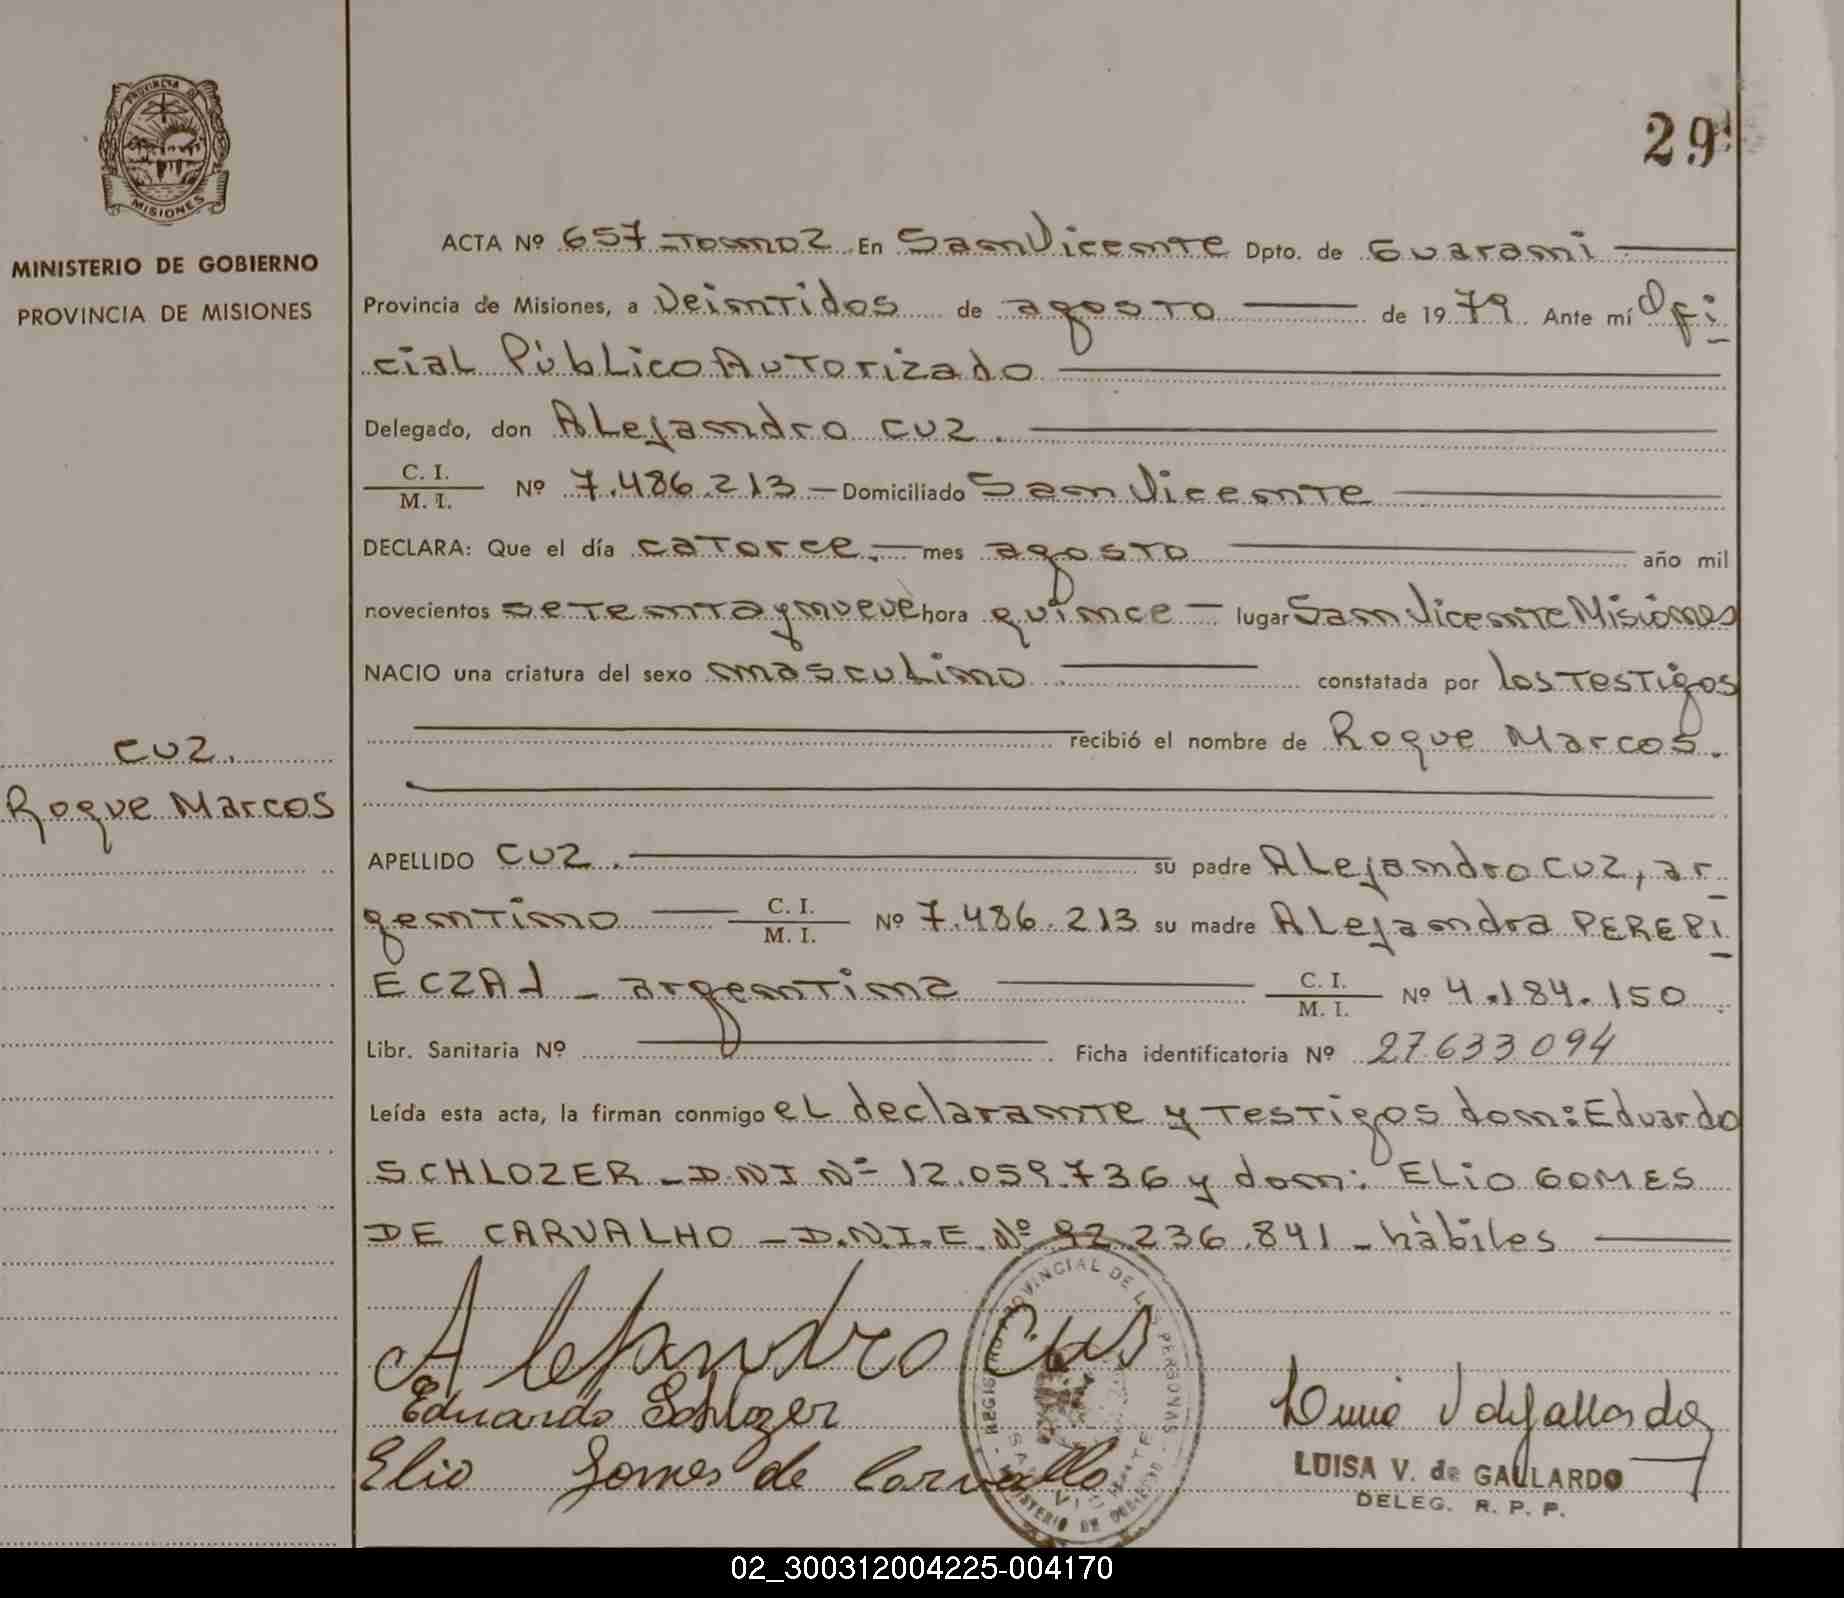 PROVINCIA DE
MISIONES
MINISTERIO DE GOBIERNO
PROVINCIA DE MISIONES
CUZ.
Roque Marcos
29
ACTA Nº 657 - Tomo 2 En San Vicente Dpto. de Guarani
Provincia de Misiones, a Veintidos de agosto de 1979 Ante mí Ofi
cial Público Autorizado
Delegado, don Alejandro CUZ.
C. I.
M. I. Nº 7.486.213 — Domiciliado San Vicente
DECLARA: Que el día catorce.— mes agosto año mil
novecientos setenta y nueve hora quince — lugar San Vicente Misiones
NACIO una criatura del sexo masculino constatada por los testigos
recibió el nombre de Roque Marcos.
APELLIDO CUZ. su padre Alejandro CUZ, ar-
gentino C. I.
M. I. Nº 7.486.213 su madre Alejandra PEREPI-
ECZAJ - argentina C. I.
M. I. Nº 4.184.150
Libr. Sanitaria Nº Ficha identificatoria Nº 27633094
Leída esta acta, la firman conmigo el declarante y testigos don: Eduardo
SCHLOZER - DNI Nº 12.059.736 y don: ELiO GOMES
DE CARVALHO - D.N.I.E. Nº 92.236.841 - hàbiles
Alejandro Cus
Eduardo Schlozer
Elio Gomes de Carvallo
REGISTRO PROVINCIAL DE LAS PERSONAS
SAN VICENTE
MINISTERIO DE GOBIERNO
LUISA V. de GALLARDO
DELEG. R. P. P.
02_300312004225-004170